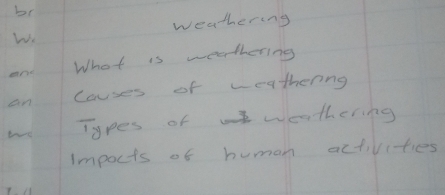 br
Weathering
W.
What is weathering
am
Causes of weathering
an
Types of weathering
Impacts of human activities